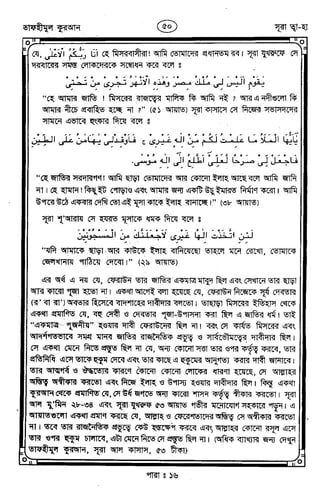 তাফহীমুল কুরআন
৫০
সূরা ত্বা-হা
যে, হে মিসরবাসীরা! আমি তোমাদের প্রধানতম রব। সূরা যুখরুফে সে
দরবারের সমস্ত লোকদেরকে সম্বোধন করে বলেঃ
يٰقَوْمِ اَلَيْسَ لِىْ مُلْكُ مِصْرَ وَهٰذِهِ الْاَنْهٰرُ تَجْرِىْ مِنْ تَحْتِىْ
"হে আমার জাতি! মিসরের রাজত্বের মালিক কি আমি নই? আর এ নদীগুলো কি
আমার নীচে প্রবাহিত হচ্ছে না?" (৫১ আয়াত) সূরা কাসাসে সে নিজের সভাসদদের
সামনে এভাবে হুংকার দিয়ে বলেঃ
يٰٓاَيُّهَا الْمَلَاُ مَا عَلِمْتُ لَكُمْ مِّنْ اِلٰهٍ غَيْرِىْ ۚ فَاَوْقِدْ لِىْ يٰهَامٰنُ عَلَى الطِّيْنِ
فَاجْعَلْ لِّىْ صَرْحًا لَّعَلِّىْٓ اَطَّلِعُ اِلٰٓى اِلٰهِ مُوْسٰى
"হে জাতির সরদারগণ! আমি ছাড়া তোমাদের আর কোনো ইলাহ আছে বলে আমি জানি
না। হে হামান! কিছু ইট পোড়াও এবং আমার জন্য একটি উঁচু ইমারত নির্মাণ করো। আমি
উপরে উঠে একবার দেখি তো এই মূসা কাকে ইলাহ বানাচ্ছে।" (৩৮ আয়াত)
সূরা শূ'আরায় সে হযরত মূসাকে ধমক দিয়ে বলেঃ
لَئِنِ اتَّخَذْتَ اِلٰهًا غَيْرِىْ لَاَجْعَلَنَّكَ مِنَ الْمَسْجُوْنِيْنَ
"যদি আমাকে ছাড়া আর কাউকে ইলাহ বানিয়েছো তাহলে মনে রেখো, তোমাকে
জেলখানায় পাঠিয়ে দেবো।" (২৯ আয়াত)
এর অর্থ এ নয় যে, ফেরাউন তার জাতির একমাত্র মাবুদ ছিল এবং সেখানে তার ছাড়া
আর কারো পূজা হতো না। একথা আগেই বলা হয়েছে যে, ফেরাউন নিজেকে সূর্য দেবতার
(র' বা রা') অবতার হিসেবে বাদশাহের দাবীদার বলতো। তাছাড়া মিসরের ইতিহাস থেকে
একথা প্রমাণিত যে, বহু দেবী ও দেবতার পূজা-উপাসনা করা ছিল এ জাতির ধর্ম। তাই
"একমাত্র পূজনীয়" হওয়ার দাবী ফেরাউনের ছিল না। বরং সে কার্যত মিসরের এবং
আদর্শগতভাবে সমগ্র মানব জাতির রাজনৈতিক প্রভুত্ব ও সার্বভৌমত্বের দাবীদার ছিল।
সে একথা মেনে নিতে প্রস্তুত ছিল না যে, অন্য কোনো সত্তা তার ওপর কর্তৃত্ব করবে, তার
প্রতিনিধি এসে তাকে হুকুম দেবে এবং তার কাছে এ হুকুমের আনুগত্য করার দাবী জানাবে।
তার আত্মগর্ব ও ঔদ্ধত্যের কারণে কোনো কোনো লোকের ধারণা হয়েছে, সে আল্লাহর
অস্তিত্ব অস্বীকার করতো এবং নিজে ইলাহ ও উপাস্য হওয়ার দাবীদার ছিল। কিন্তু একথা
কুরআন থেকে প্রমাণিত যে, সে ঊর্ধ জগতে অন্য কারো শাসন কর্তৃত্ব স্বীকার করতো। সূরা
আল মু'মিন ২৮-৩৪ এবং সূরা যুখরুফ ৫৩ আয়াত গভীর মনোযোগ সহকারে পড়ুন। এ
আয়াতগুলো একথা প্রমাণ করছে যে, আল্লাহ ও ফেরেশতাদের অস্তিত্ব সে অস্বীকার করতো
না। তবে তার রাজনৈতিক প্রভুত্বে কেউ হস্তক্ষেপ করবে এবং আল্লাহর কোনো রসূল এসে
তার ওপর হুকুম চালাবে, এটা মেনে নিতে সে প্রস্তুত ছিল না। (অধিক ব্যাখ্যার জন্য দেখুন
তাফহীমুল কুরআন, সূরা আল কাসাস, ৫৩ টীকা)
পারাঃ ১৬